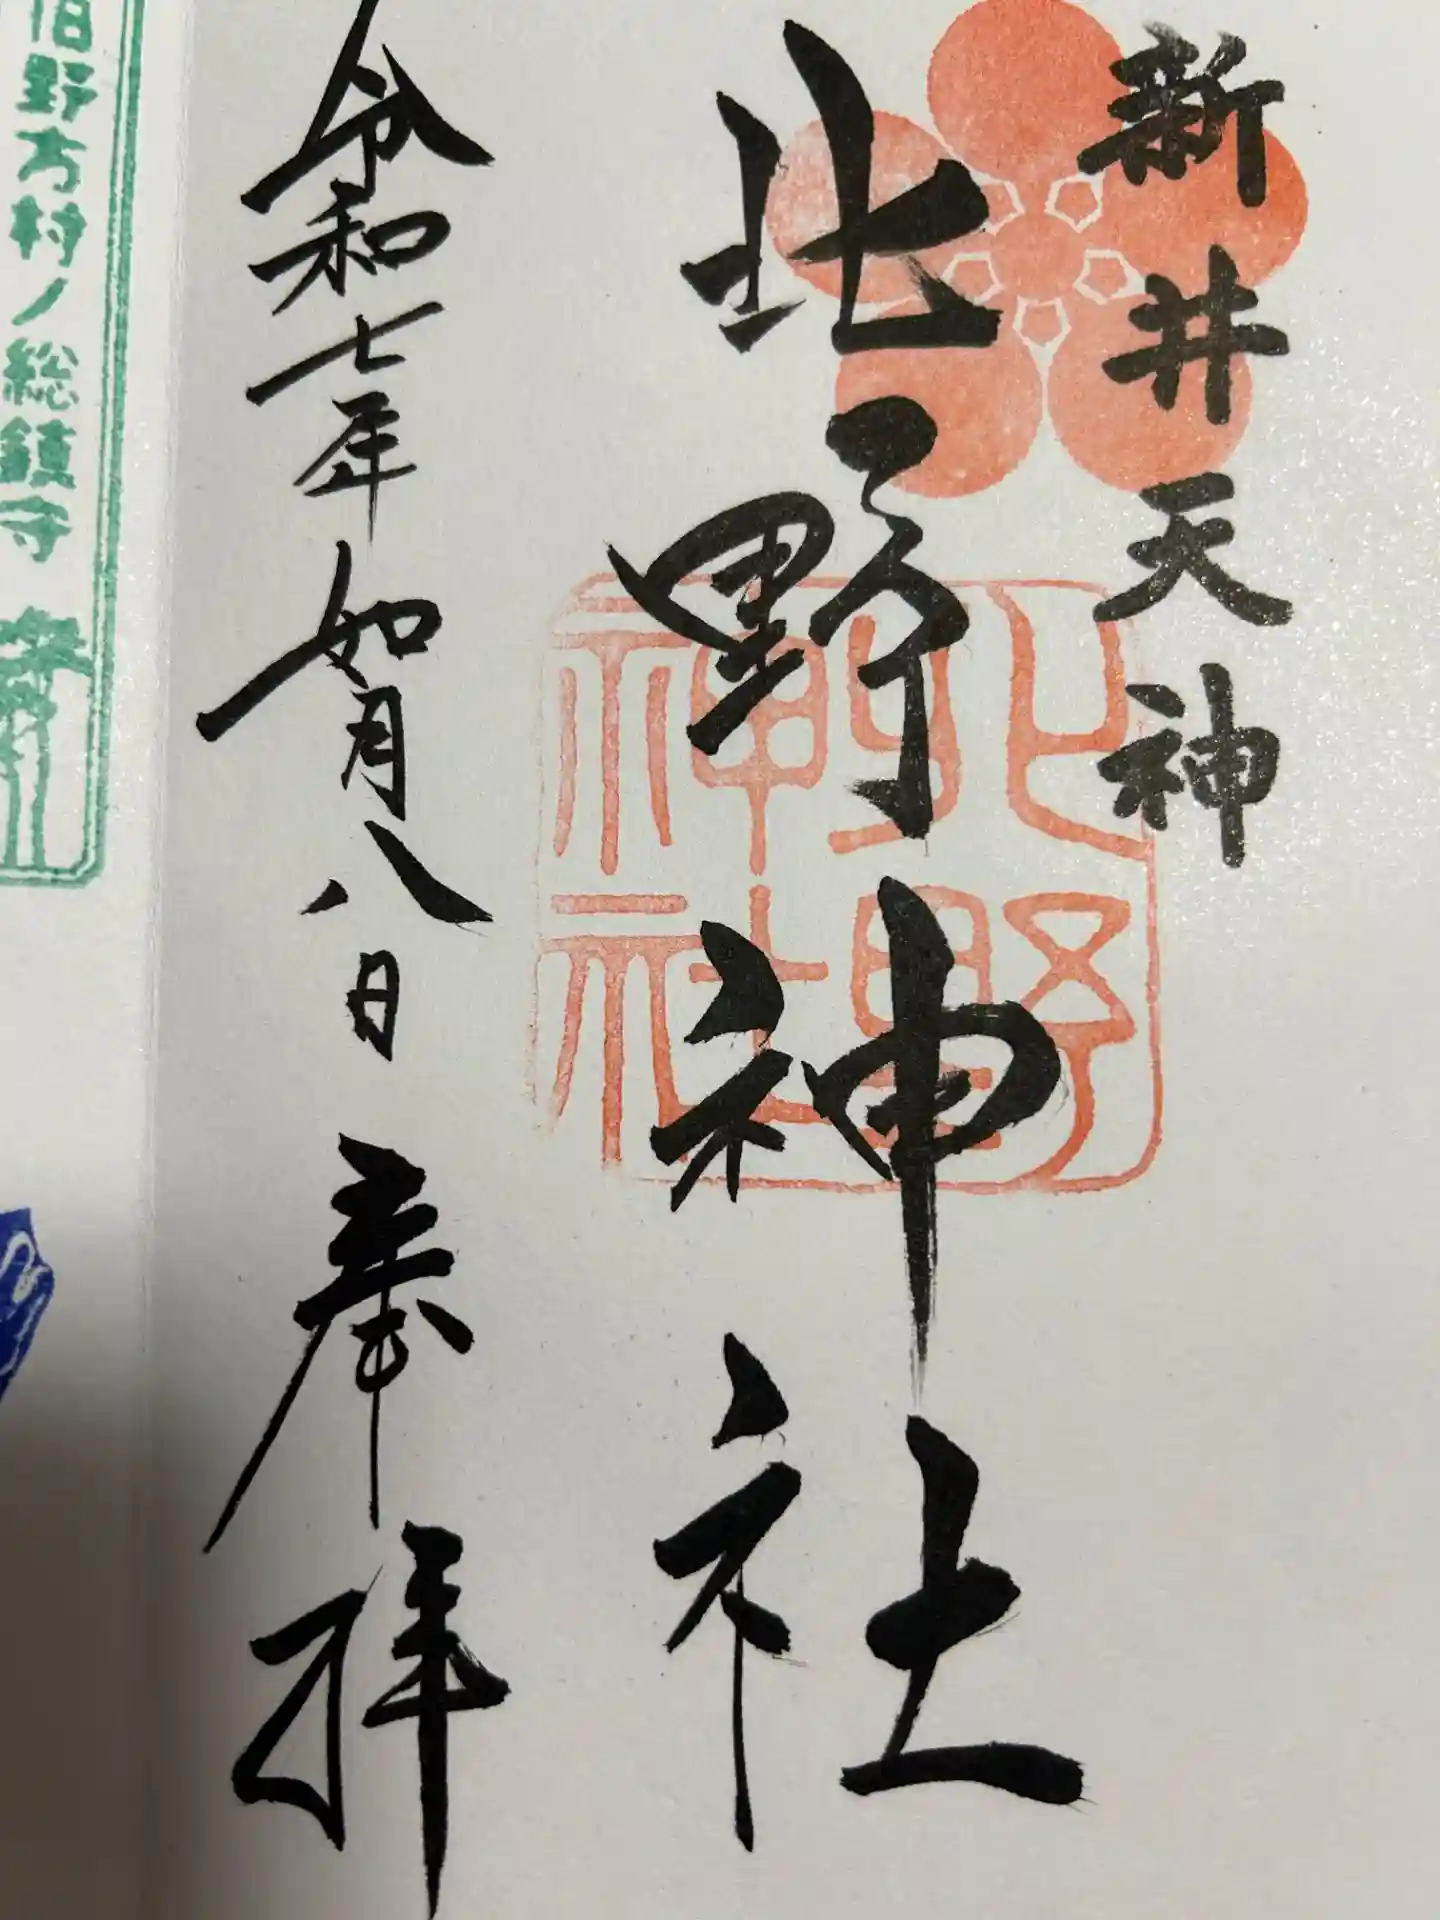 新井天神
北野神社
北野神社
令和七年如月八日奉拝
旧野方村ノ総鎮守